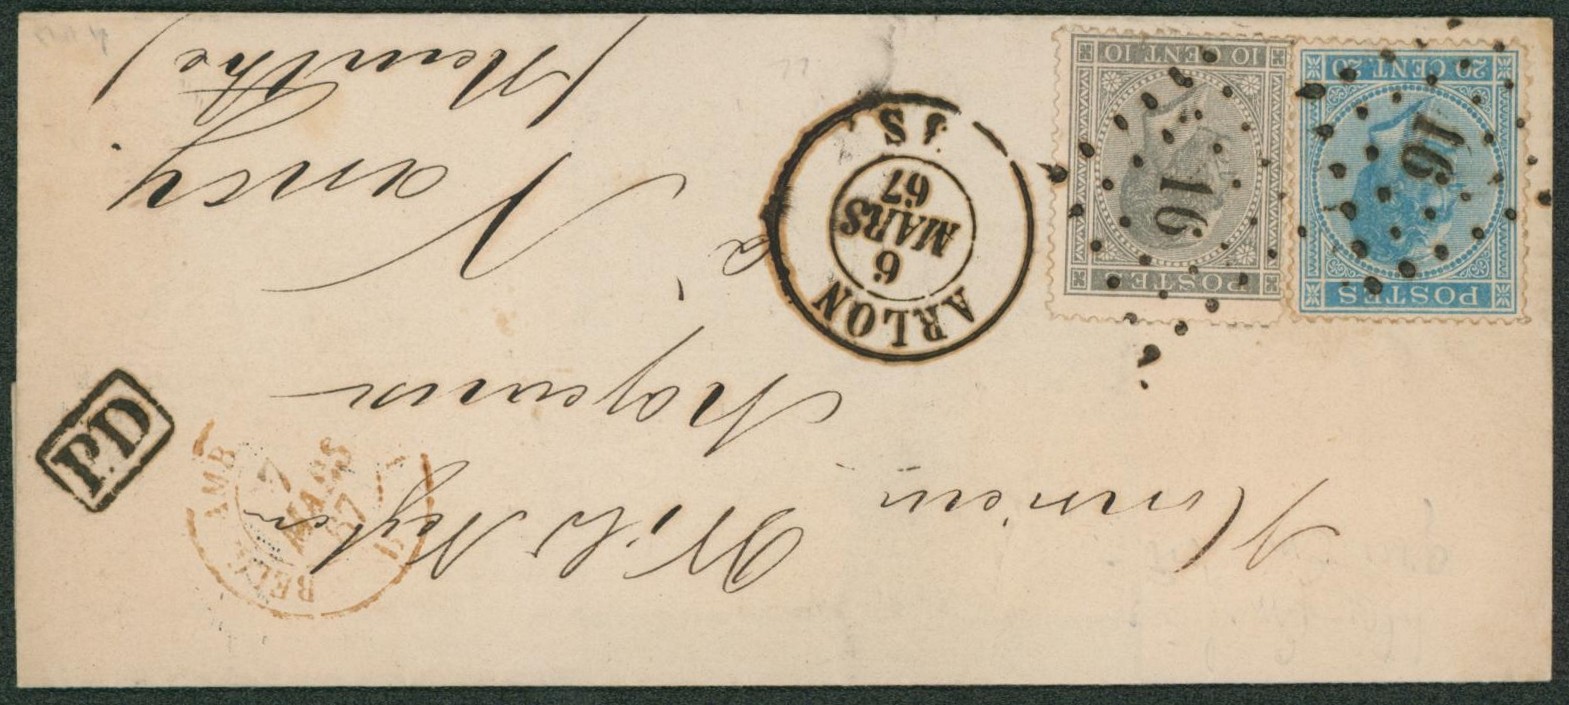 Monsieur
Wilh Neyten
Noyeuur
à
Nancy
(Meurthe)
POSTES
20 CENT. 20
16
POSTES
10 CENT. 10
16
ARLON
6
MARS
67
3S
P.D
BELG.
AMB
7
MARS
67